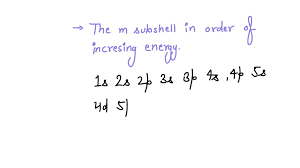 → The m subshell in order of
incresing energy.
1s 2s 2p 3s 3p 4s , 4p 5s
4d 5p